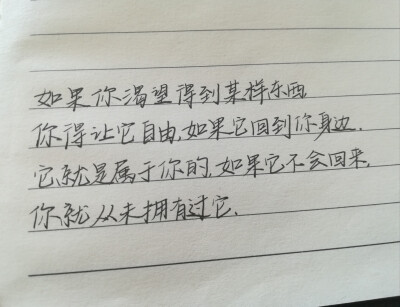 如果你渴望得到某样东西
你得让它自由,如果它回到你身边,
它就是属于你的,如果它不会回来,
你就从未拥有过它.